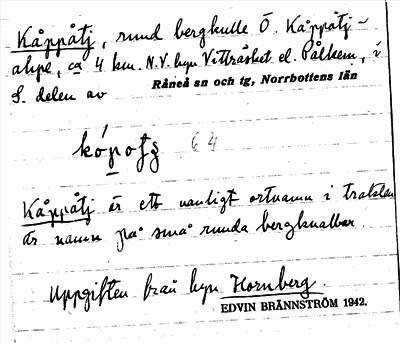 Kåppåtj, rund bergkulle Ö. Kåppåtj-
alpe, ca 4 km. N.V. byn Vitträsket el. Pålkem, i
S. delen av Råneå sn och tg, Norrbottens län
kópotʒ 64
Kåppåtj är ett vanligt ortnamn i trakten
är namn på små runda bergknallar.
Uppgiften från byn Hornberg.
EDVIN BRÄNNSTRÖM 1942.